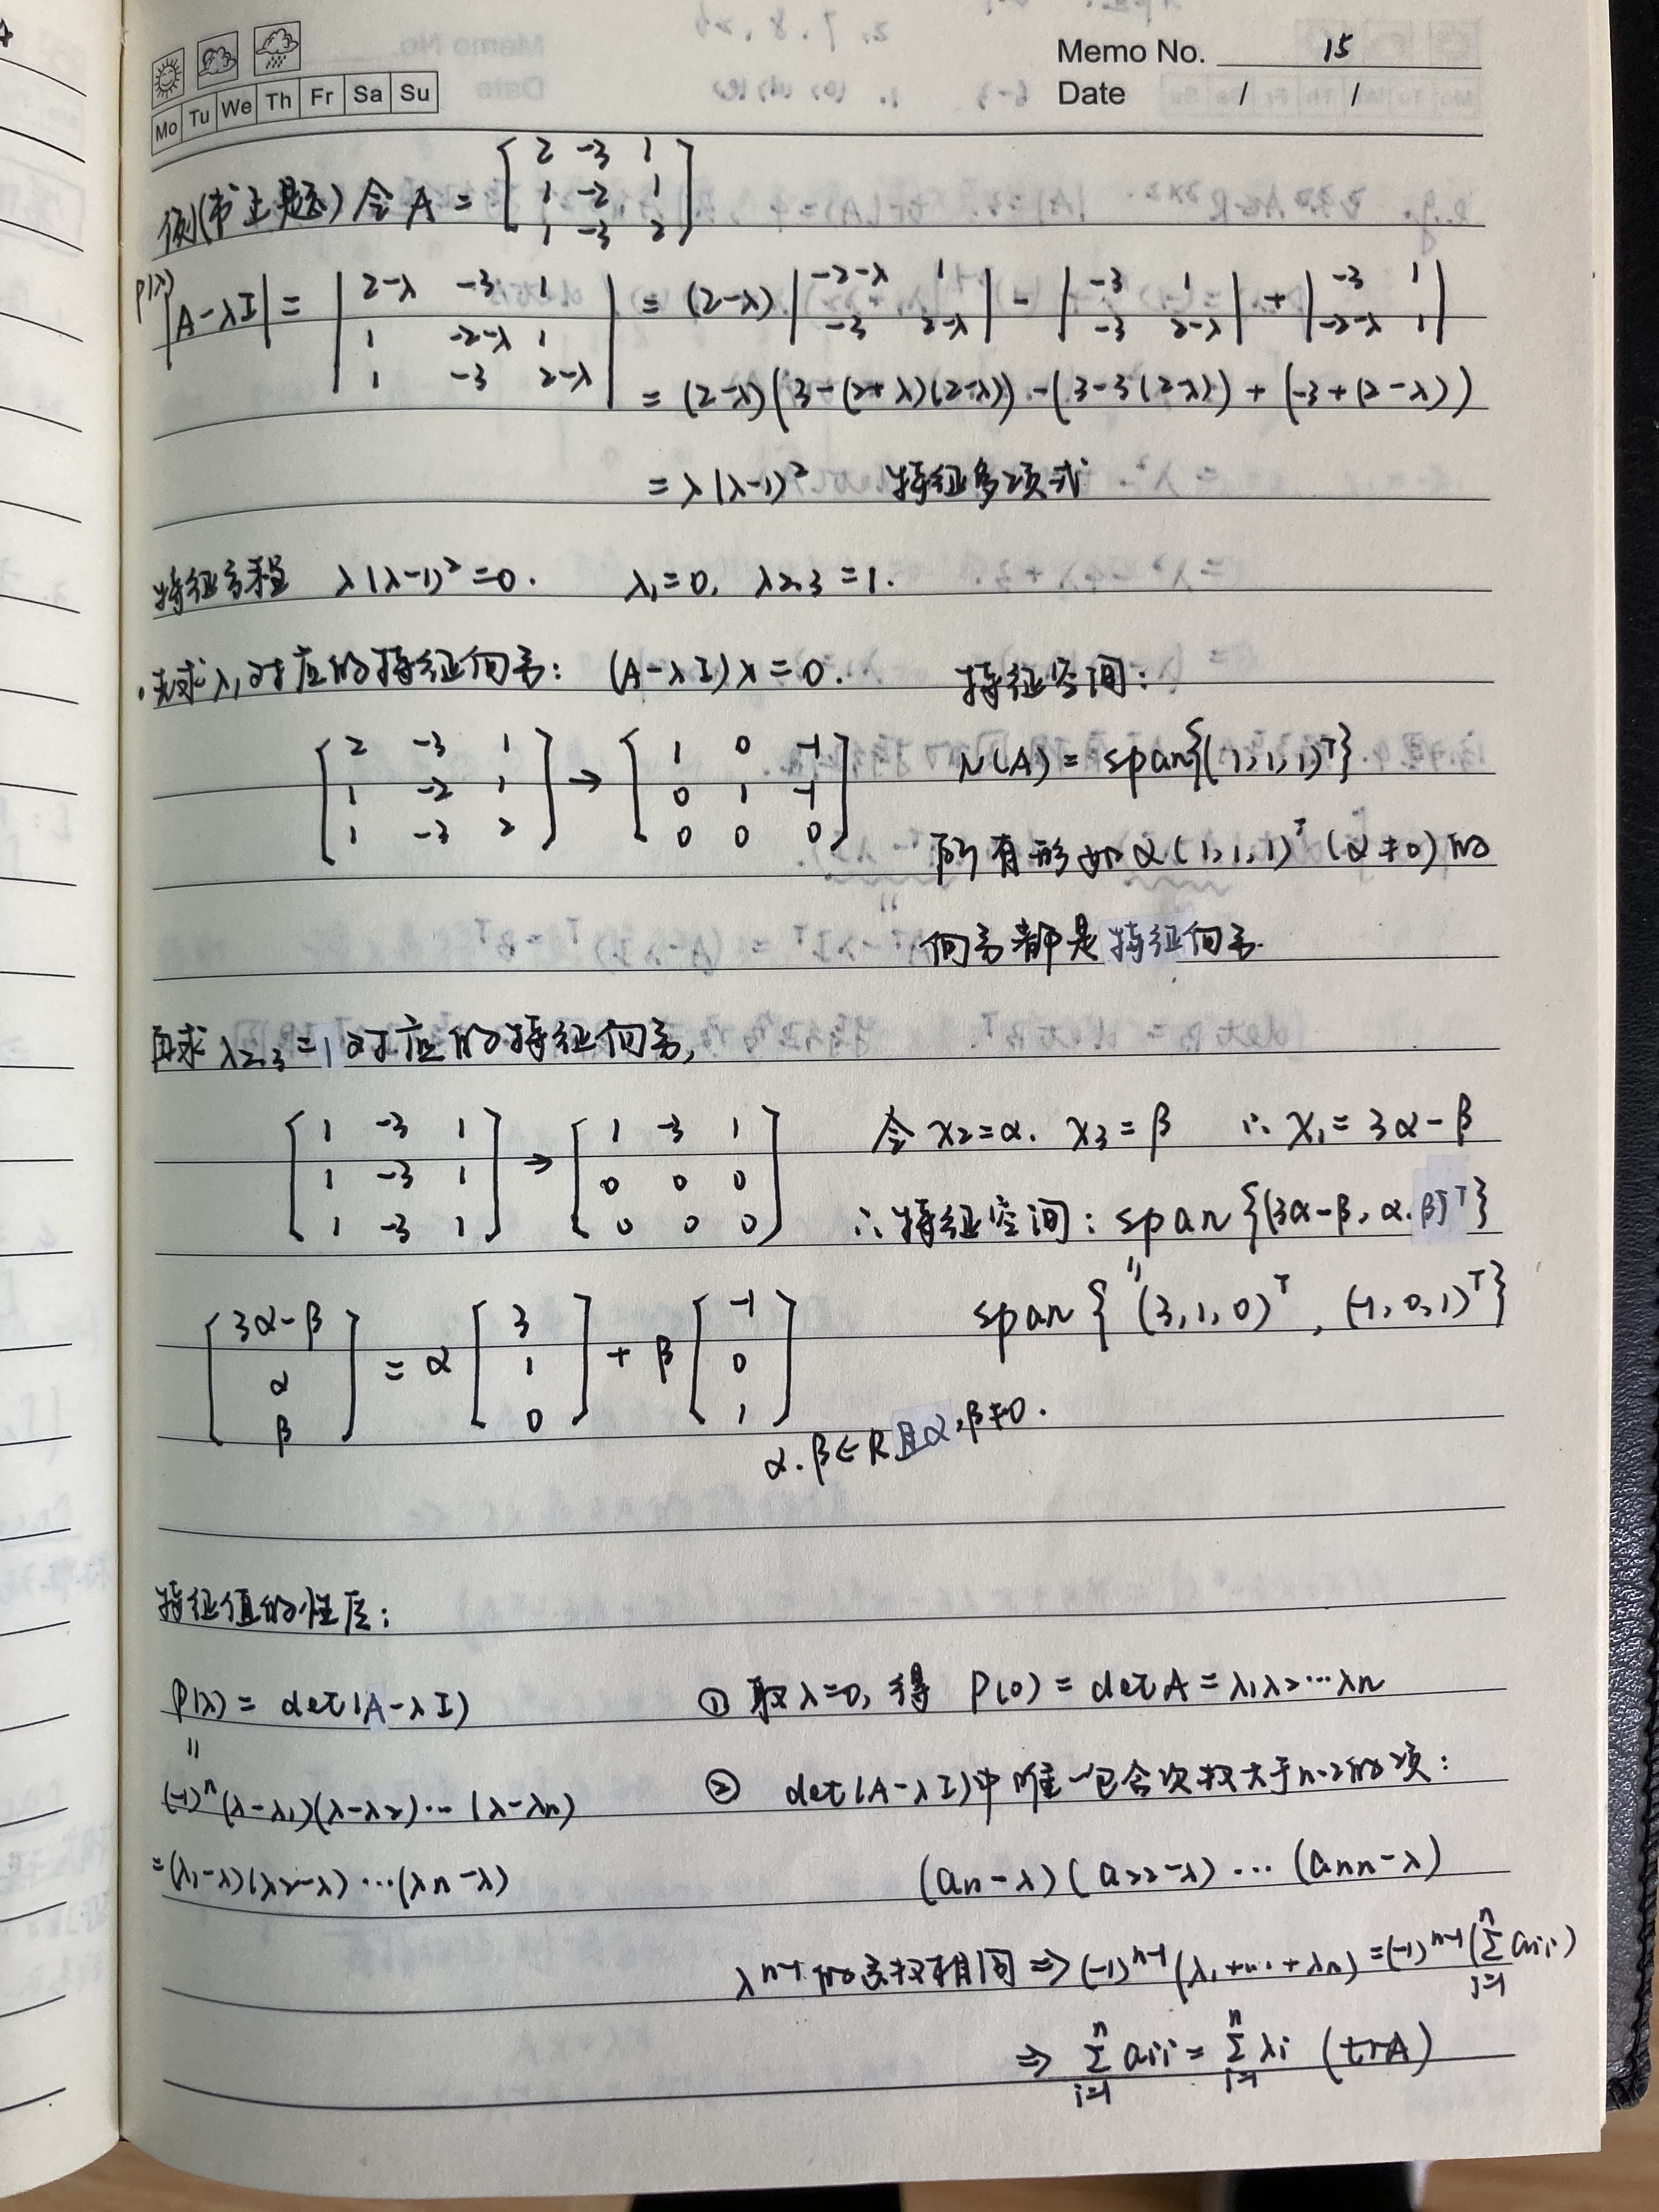 Memo No. 15
Mo Tu We Th Fr Sa Su
Date / /
例(书上题) 令 A = [2 -3 1; 1 -2 1; 1 -3 2]
P(λ) |A-λI| = |2-λ -3 1; 1 -2-λ 1; 1 -3 2-λ| = (2-λ) |-2-λ 1; -3 2-λ| - |-3 1; -3 2-λ| + |-3 1; -2-λ 1|
= (2-λ)(3-(2+λ)(2-λ)) - (3-3(2-λ)) + (-3+(2-λ))
= λ(λ-1)² 特征多项式
特征方程 λ(λ-1)² = 0. λ₁=0, λ₂,₃=1.
先求λ₁对应的特征向量: (A-λI)x = 0. 特征空间:
[2 -3 1; 1 -2 1; 1 -3 2] → [1 0 -1; 0 1 -1; 0 0 0] N(A) = span{(1,1,1)ᵀ}
所有形如α(1,1,1)ᵀ (α≠0) 的
向量都是特征向量.
再求λ₂,₃=1对应的特征向量,
[1 -3 1; 1 -3 1; 1 -3 1] → [1 -3 1; 0 0 0; 0 0 0] 令 x₂=α. x₃=β ∴ x₁=3α-β
∴特征空间: span{(3α-β, α. β)ᵀ}
[3α-β; α; β] = α[3; 1; 0] + β[-1; 0; 1] = span{(3,1,0)ᵀ, (-1,0,1)ᵀ}
α.β∈R且α,β≠0.
特征值的性质:
P(λ) = det(A-λI) ① 取λ=0, 得 P(0) = det A = λ₁λ₂⋯λn
= (-1)ⁿ(λ-λ₁)(λ-λ₂)⋯(λ-λn) ② det(A-λI)中唯一包含次数大于n-2的项:
=(λ₁-λ)(λ₂-λ)⋯(λn-λ) (a₁₁-λ)(a₂₂-λ)⋯(ann-λ)
λⁿ⁻¹的系数相同 ⇒ (-1)ⁿ⁻¹(λ₁+⋯+λn) = (-1)ⁿ⁻¹(∑ⁿᵢ₌₁ aii)
⇒ ∑ⁿᵢ₌₁ aii = ∑ⁿᵢ₌₁ λi (trA)